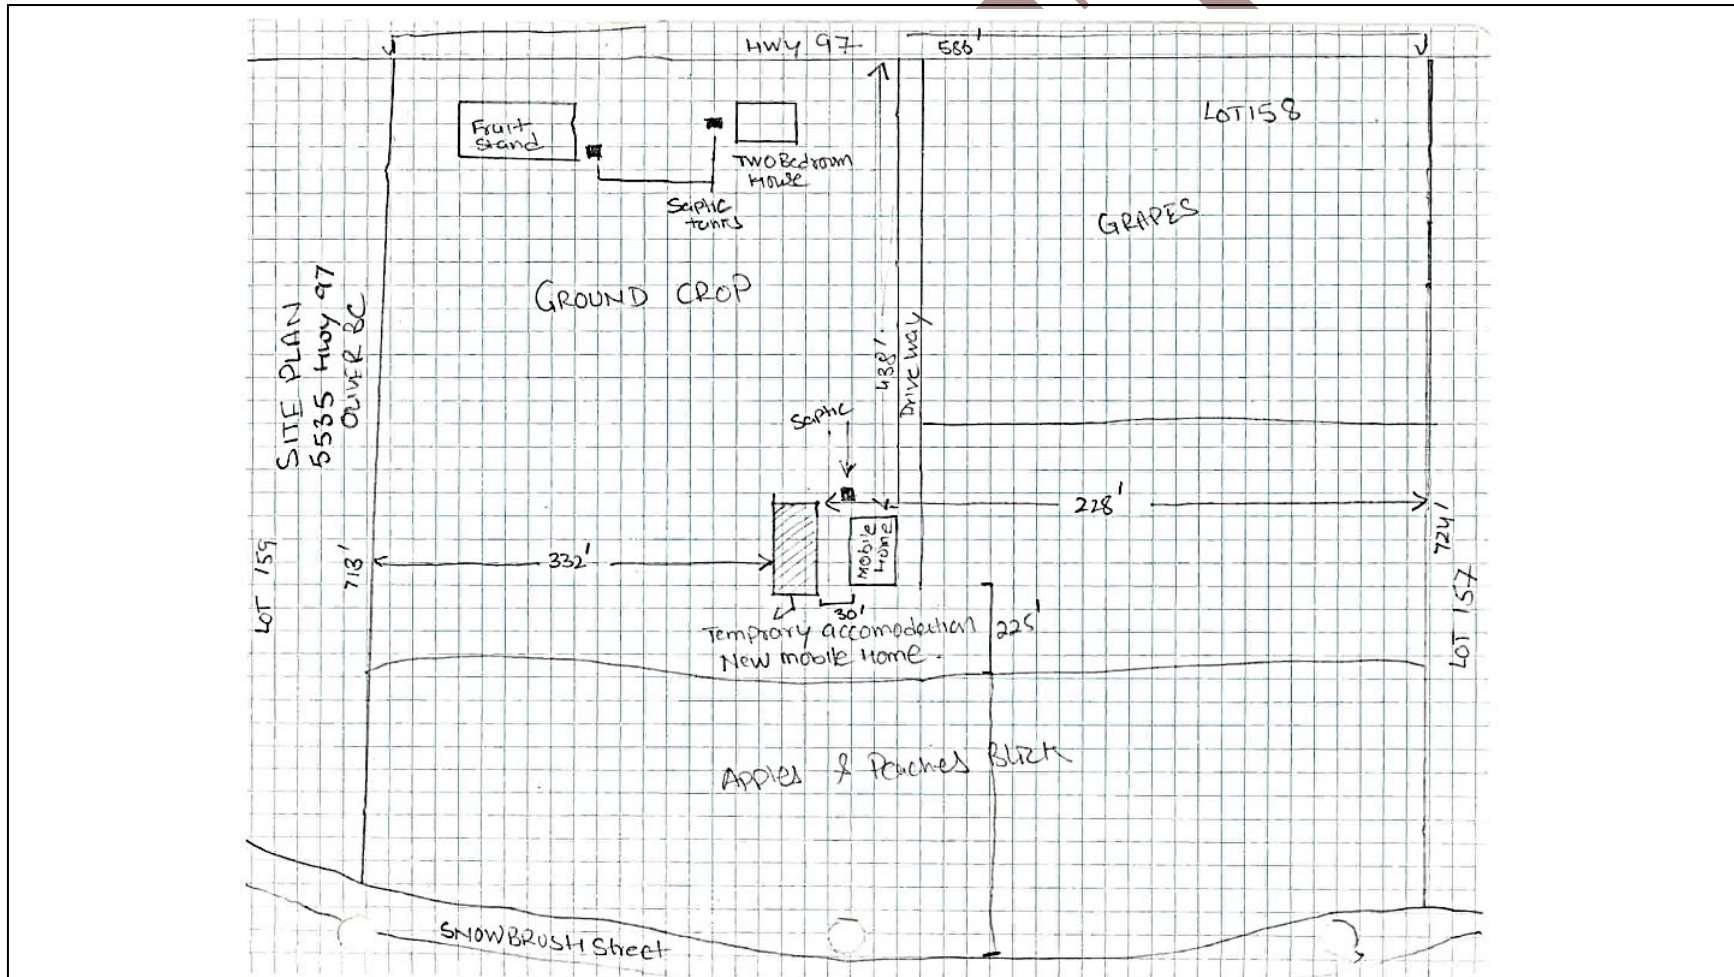 HWY 97
586'
LOT 158
Fruit
stand
TWO Bedroom
House
Saptic
tanks
GRAPES
GROUND CROP
SITE PLAN
5535 HWY 97
OLIVER BC
438'
Drive way
Saptic
228'
724'
LOT 157
LOT 159
713'
332'
Mobile
Home
30'
Temprary accomodation
New mobile Home.
225'
Apples & Peaches Block
SNOWBRUSH Street